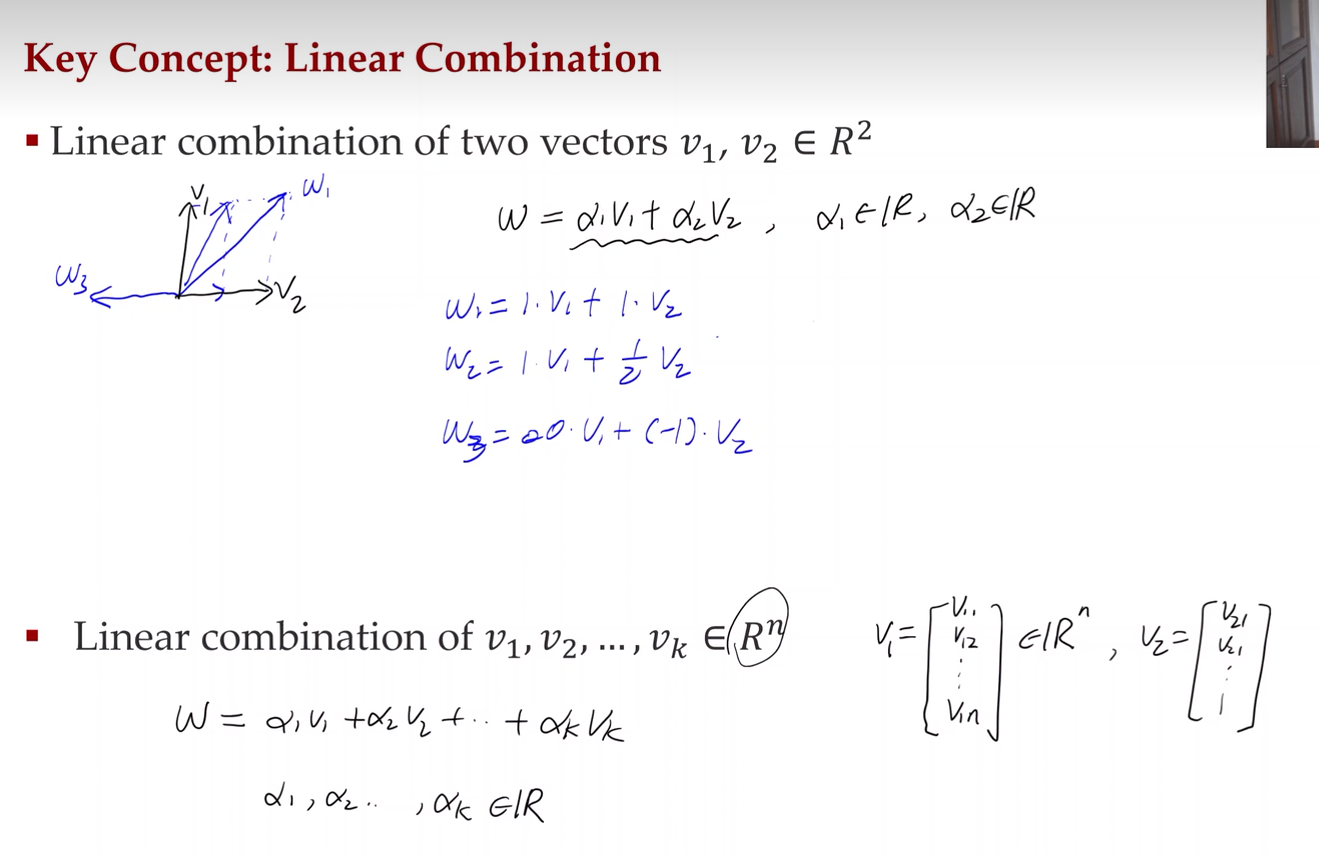 Key Concept: Linear Combination
▪ Linear combination of two vectors v₁, v₂ ∈ R²
V₁
W₁
W₃
V₂
W = α₁V₁ + α₂V₂ , α₁ ∈ ℝ, α₂ ∈ ℝ
W₁ = 1·V₁ + 1·V₂
W₂ = 1·V₁ + 1/2 V₂
W₃ = 0·V₁ + (-1)·V₂
▪ Linear combination of v₁, v₂, ..., vₖ ∈ Rⁿ
V₁ = [V₁₁ V₁₂ ⋮ V₁ₙ] ∈ ℝⁿ , V₂ = [V₂₁ V₂₁ ⋮ |]
W = α₁V₁ + α₂V₂ + ·· + αₖVₖ
α₁, α₂ ·· , αₖ ∈ ℝ